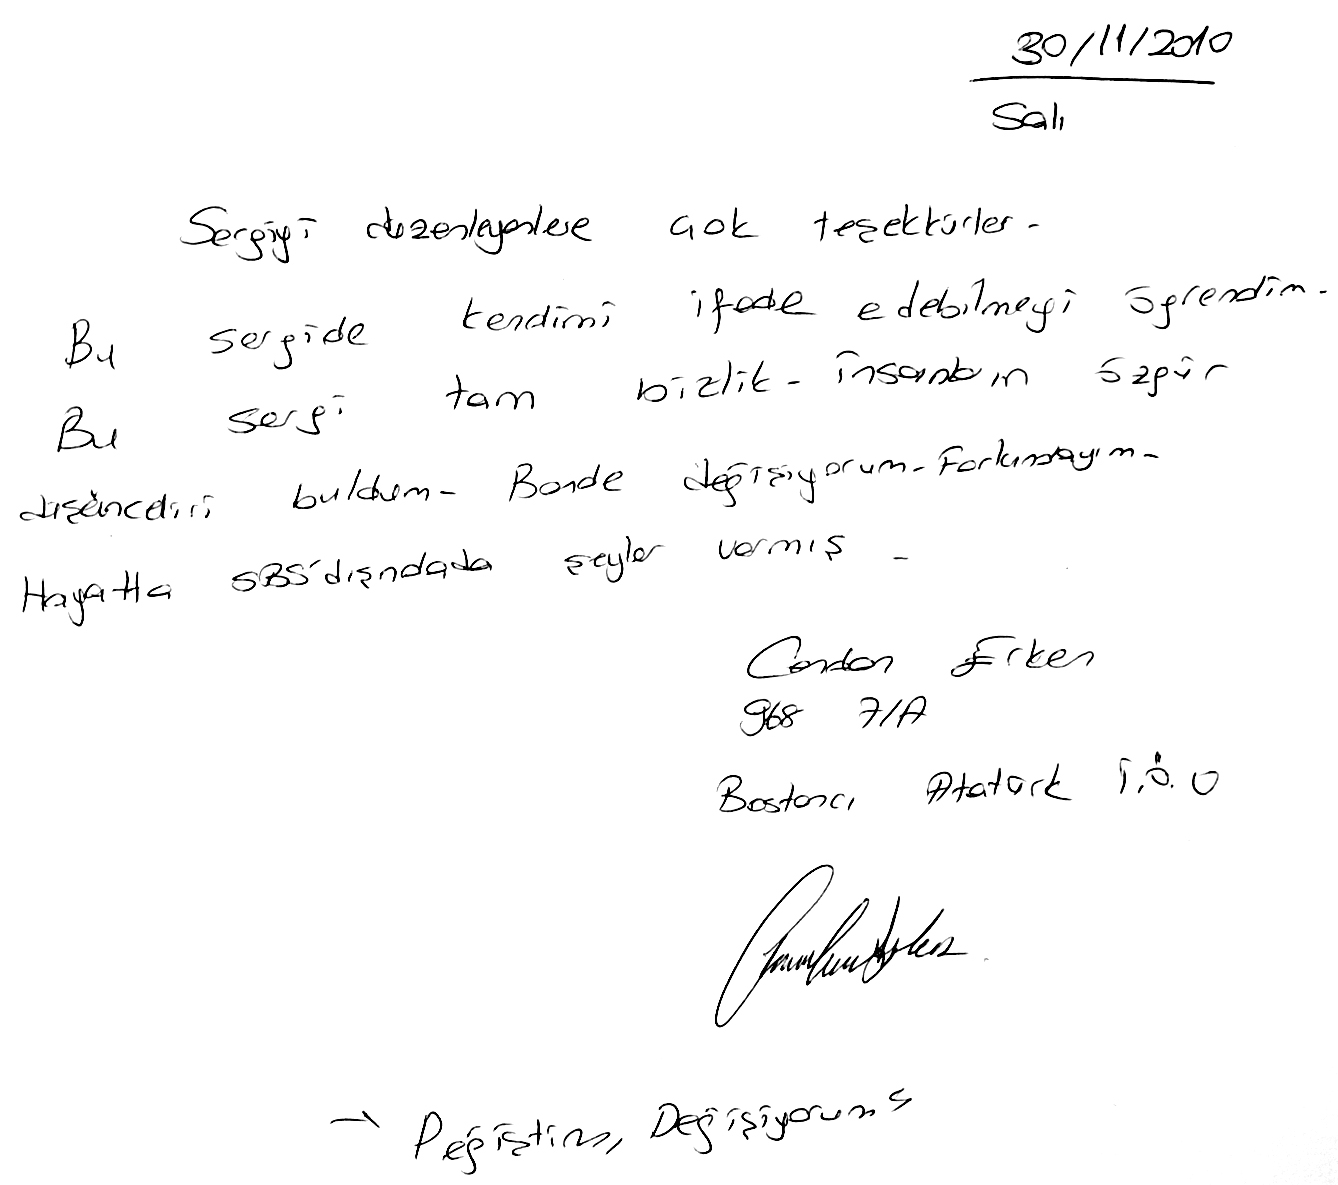 30/11/2010
Salı
Sergiyi düzenleyenlere çok teşekkürler.
Bu sergide kendimi ifade edebilmeyi öğrendim.
Bu sergi tam bizlik. İnsanların özgür
buldum. Bende değişiyorum. Farkındayım.
Hayatta SBS'dışındada şeyler varmış.
Candan Erken
968 7/A
Bostancı Atatürk İ.Ö.O
→ Değiştim, Değişiyorum